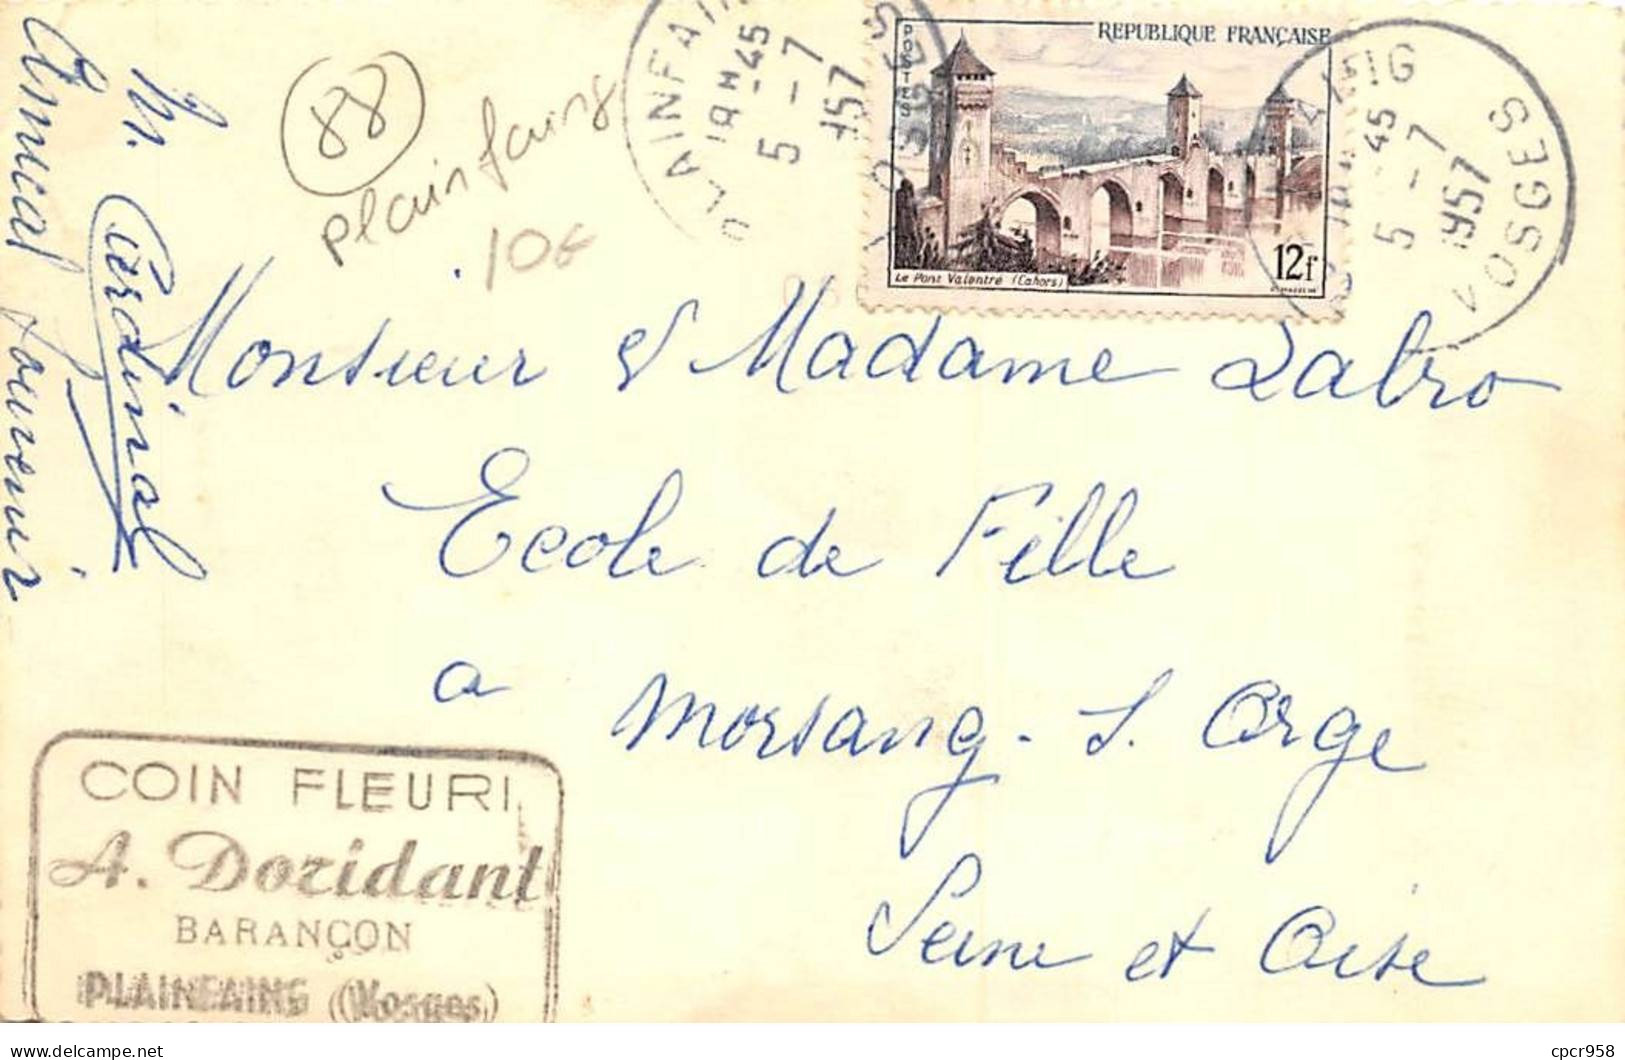 M. Cardinal
Amical souvenir
88
plainfaing
10€
PLAINFAING
VOSGES
18H-45
5-7
1957
PLAINFAING
VOSGES
18H 45
5-7
1957
REPUBLIQUE FRANÇAISE
POSTES
Le Pont Valentré (Cahors)
12f
Monsieur & Madame Labro
Ecole de Fille
a Morsang-s. Orge
Seine et Oise
COIN FLEURI
A. Doridant
BARANÇON
PLAINFAING (Vosges)
delcampe.net
cpcr958